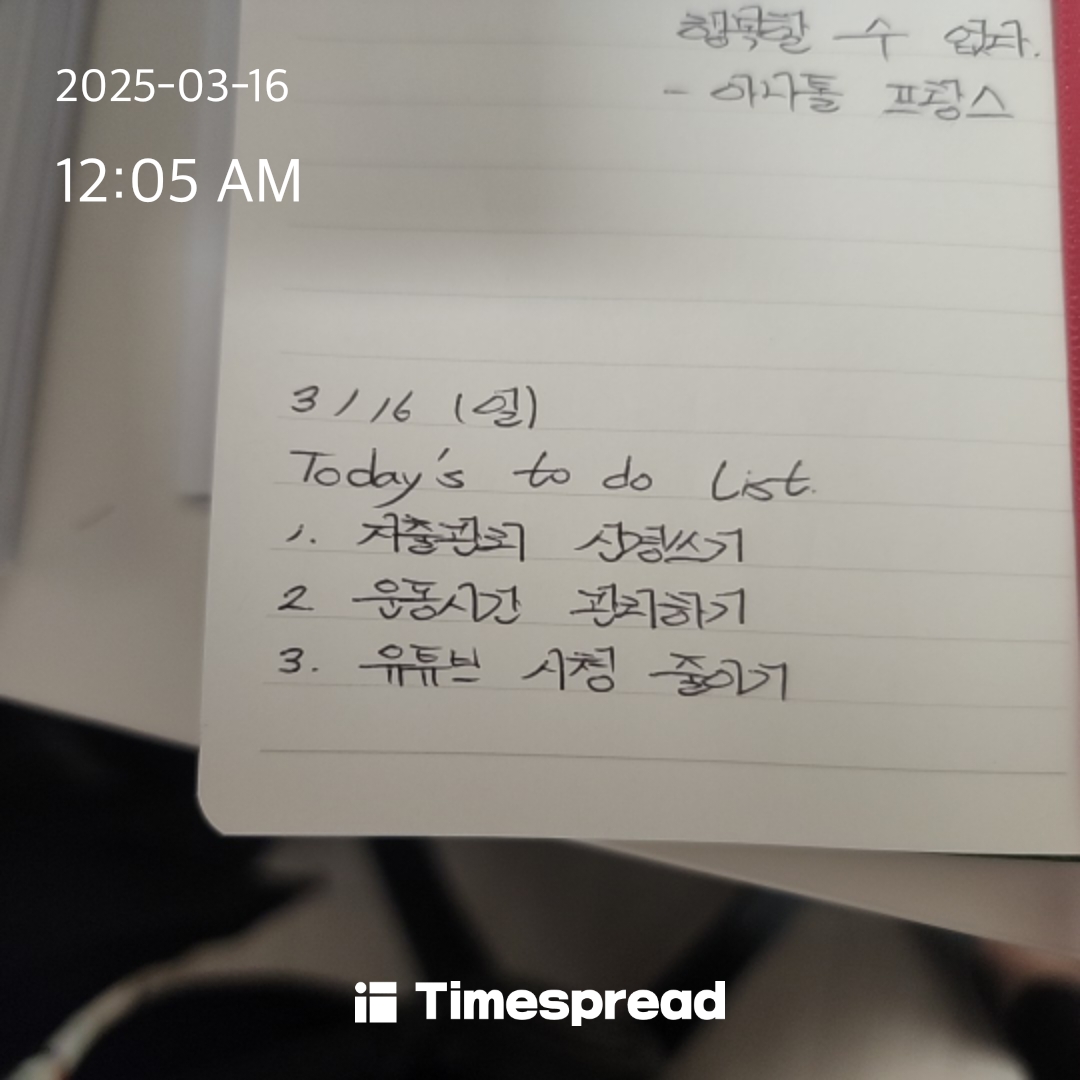 행복할 수 없다.
- 아나톨 프랑스
2025-03-16
12:05 AM
3/16 (일)
Today's to do list.
1. 지출관리 신경쓰기
2 운동시간 관리하기
3. 유튜브 시청 줄이기
Timespread